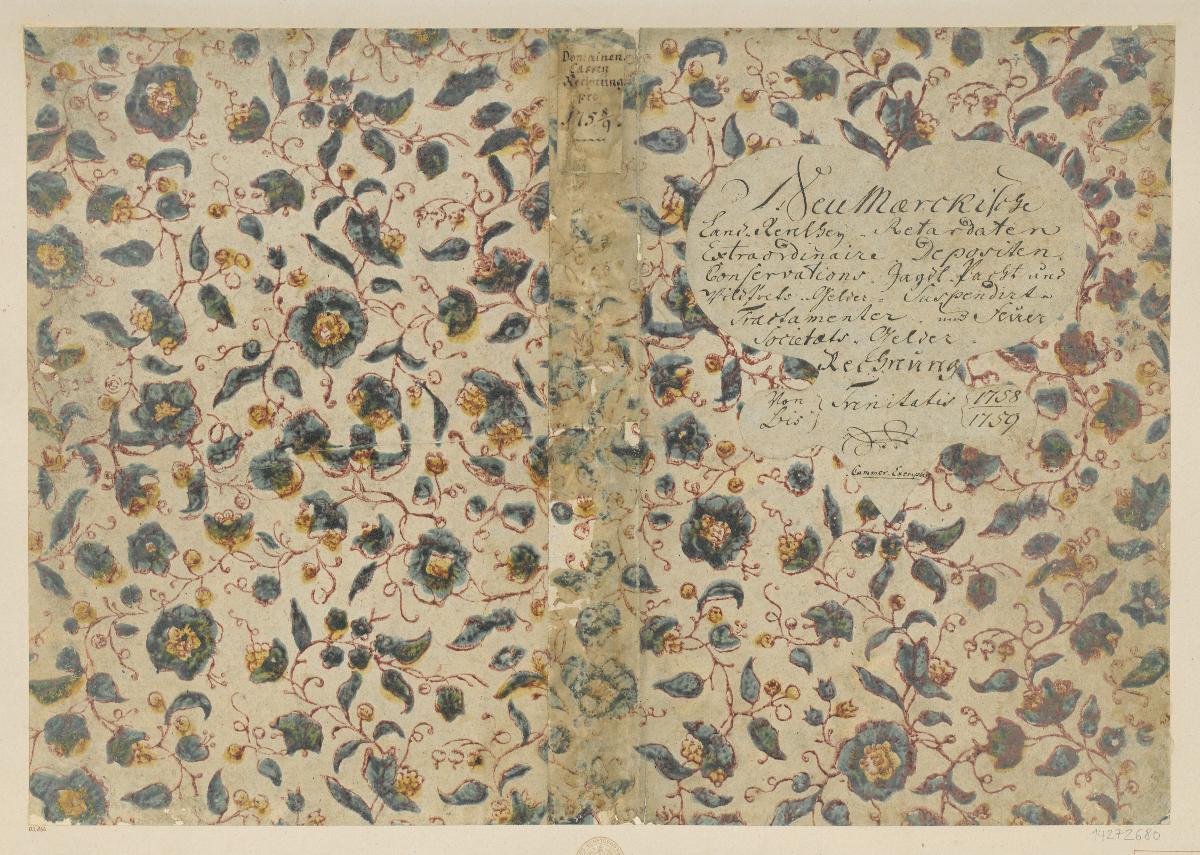 Domainen
Cassen
Rechnung
pro
175 8/9.
Neu Mærckische
Land-Renthey - Retardaten
Extraordinaire Depositen
Conservations - Jagd-Pacht und
Wildprets-Gelder - Suspendirte
Tractamenter und Feuer
Societæts-Gelder
Rechnung
Von } Trinitatis { 1758
bis } 1759
Cammer Exemplar
14272680